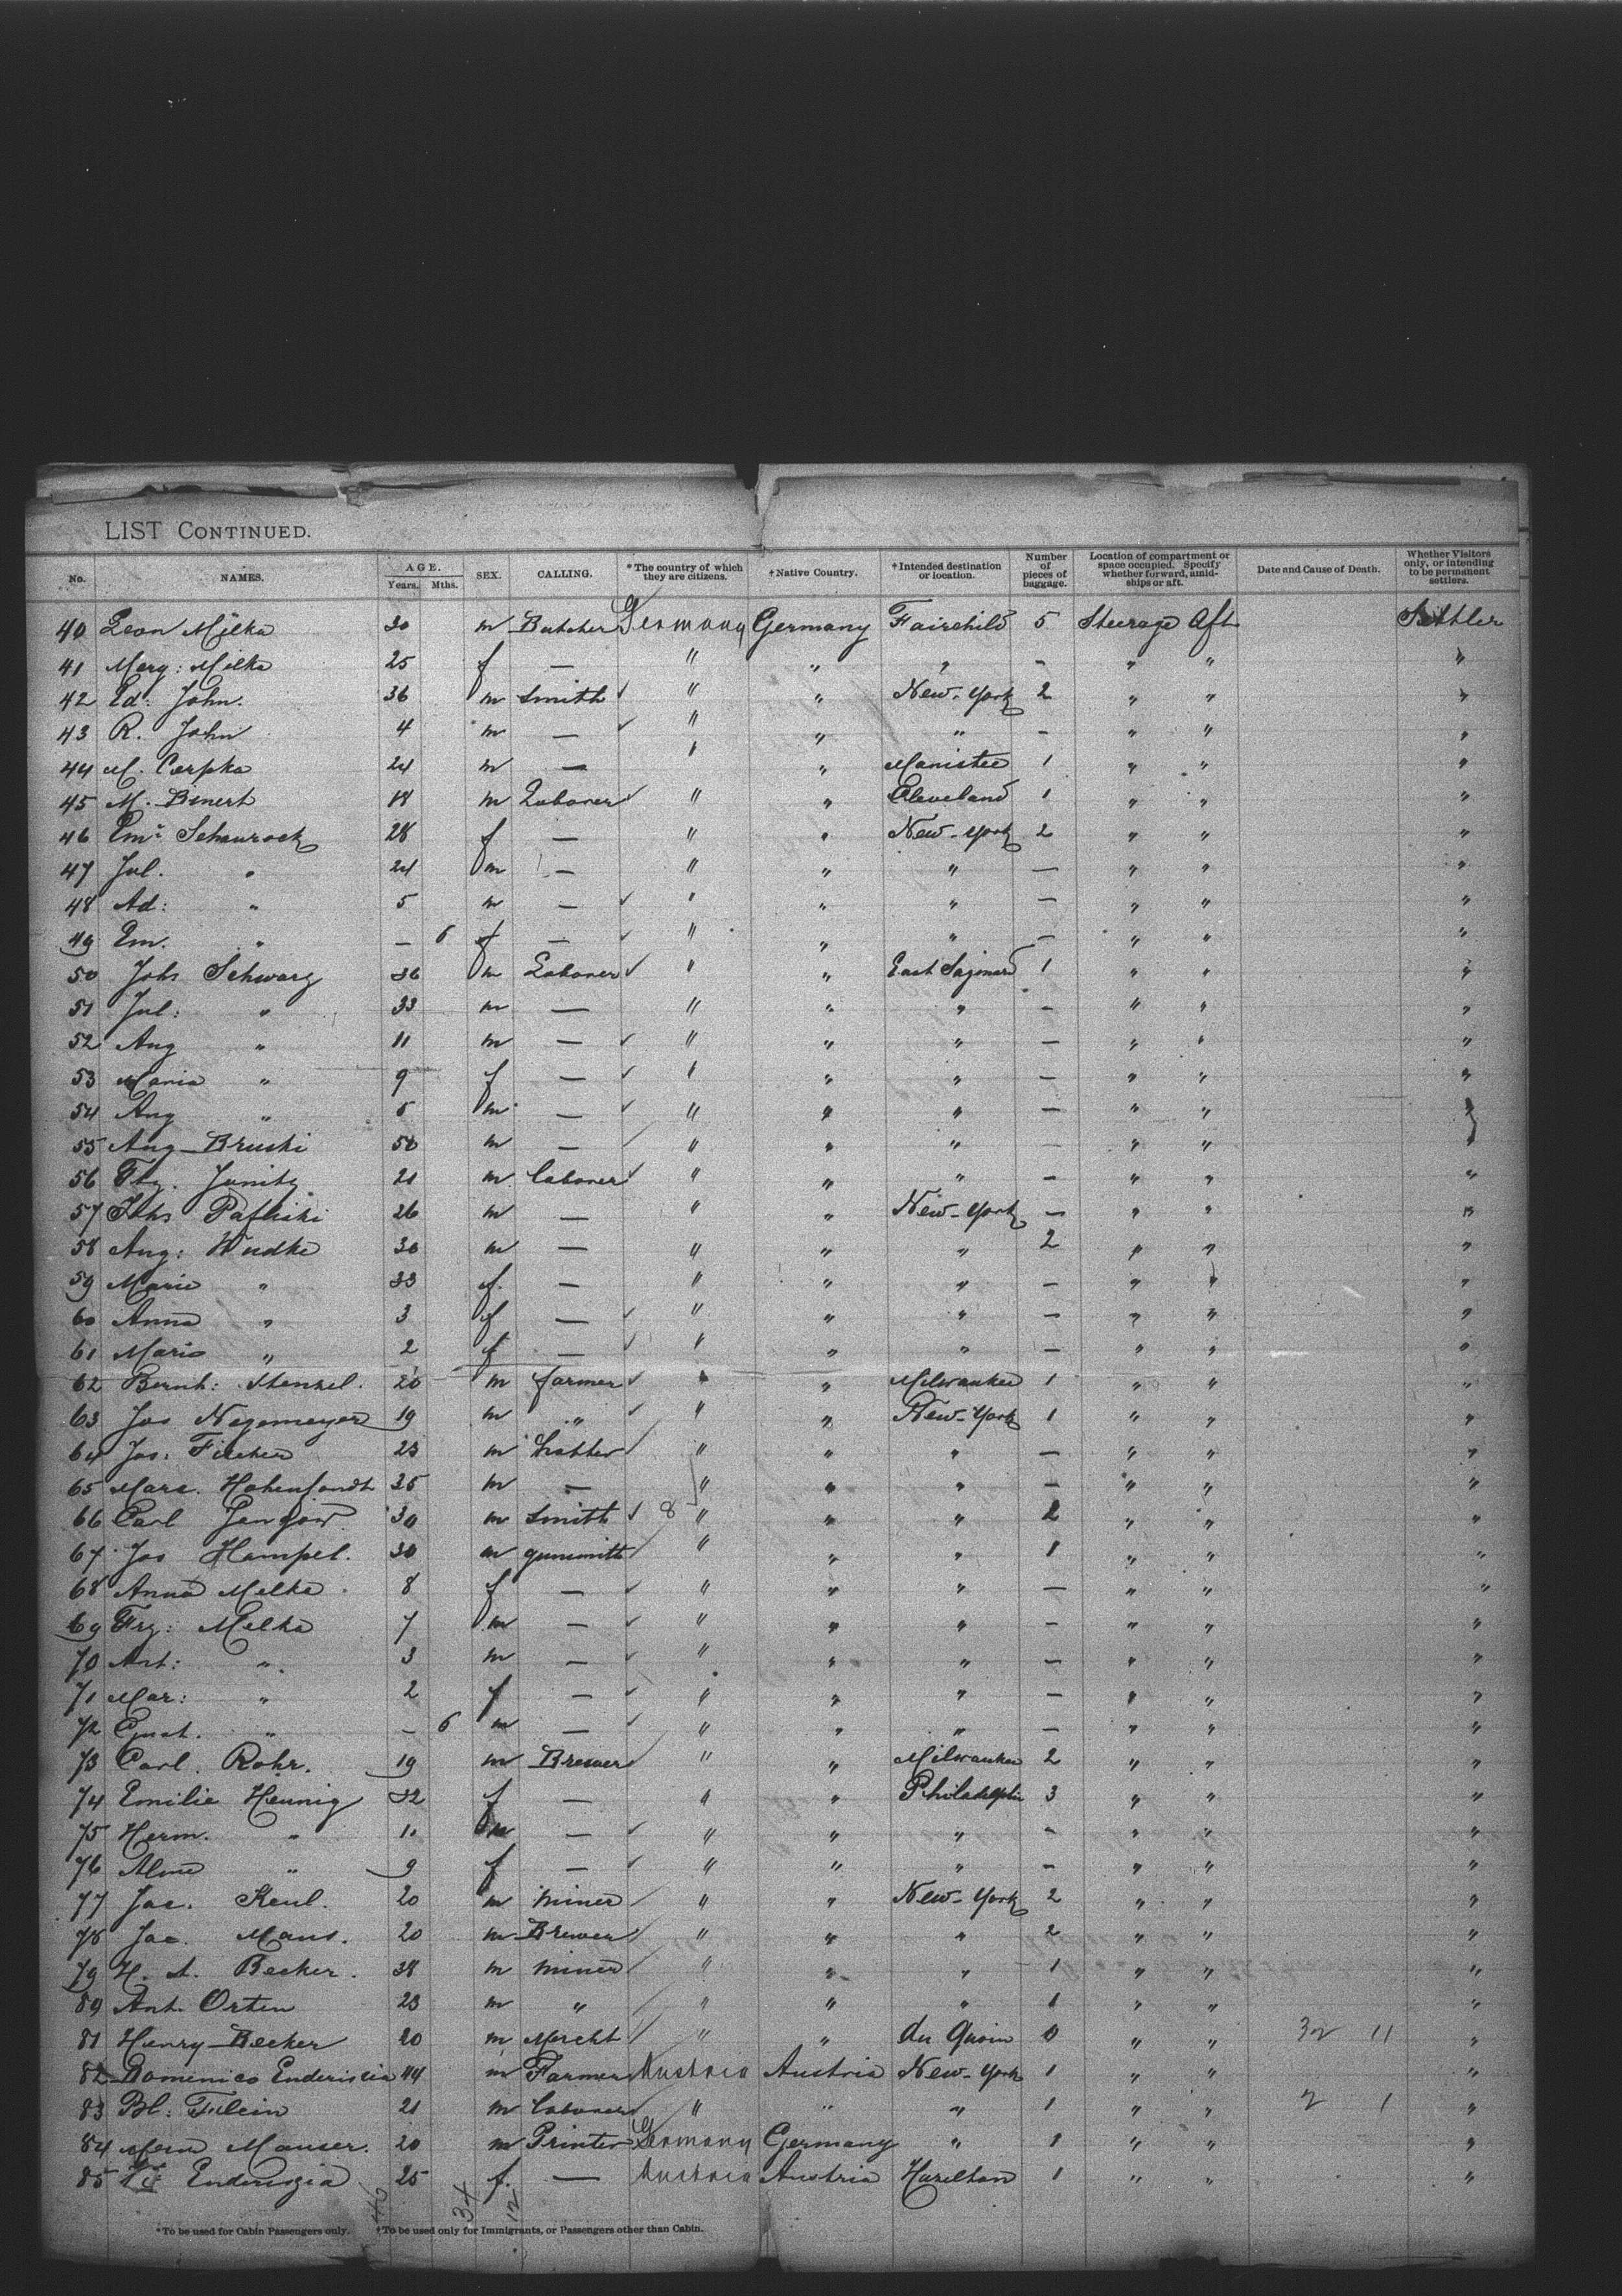 LIST CONTINUED.
No. NAMES. AGE. Years. Mths. SEX. CALLING. *The country of which they are citizens. †Native Country. †Intended destination or location. Number of pieces of baggage. Location of compartment or space occupied. Specify whether forward, amidships or aft. Date and Cause of Death. Whether Visitors only, or intending to be permanent settlers.
40 Leon Milka 30 m Butcher Germany Germany Fairchild 5 Steerage Aft Settler
41 Marg: Milka 25 f — " " " - " " "
42 Ed: John. 36 m Smith " " New-York 2 " " "
43 R. John 4 m — " " " - " " "
44 M. Cerpka 24 m — " " Manistee 1 " " "
45 M. Binert 18 m Laborer " " Cleveland 1 " " "
46 Em: Schaurock 28 f — " " New-York 2 " " "
47 Jul. " 24 m — " " " — " " "
48 Ad: " 5 m — " " " — " " "
49 Em. " — 6 f — " " " — " " "
50 Johs Schwarz 36 m Laborer " " East Saginaw 1 " " "
51 Jul: " 33 m — " " " - " " "
52 Aug " 11 m — " " " — " " "
53 Maria " 9 f — " " " — " " "
54 Aug " 5 m — " " " — " " "
55 Aug Bruski 50 m — " " " — " " "
56 Frz. 21 m laborer " " " - " " "
57 Johs 26 m — " " New-York — " " "
58 Aug: Wudke 30 m — " " " 2 " " "
59 Marie " 33 f. — " " " — " " "
60 Anna " 3 f — " " " — " " "
61 Marie " 2 f — " " " — " " "
62 Bernh: Stenzel. 20 m farmer " " Milwaukee 1 " " "
63 Jos Negemeyer 19 m " " " New-York 1 " " "
64 Jos: Fischer 23 m hatter " " " — " " "
65 Marc. 35 m — " " " — " " "
66 Carl 30 m Smith 8 " " " 2 " " "
67 Jos Hampel. 30 m gunsmith " " " 1 " " "
68 Anna Milka 8 f — " " " — " " "
69 Frz: Milka 7 m — " " " - " " "
70 Ant: " 3 m — " " " — " " "
71 Mar: " 2 f — " " " — " " "
72 " — 6 m — " " " — " " "
73 Carl. Rohr. 19 m Brewer " " Milwaukee 2 " " "
74 Emilie Hennig 32 f — " " Philadelphia 3 " " "
75 Herm. " m — " " " - " " "
76 " 9 f — " " " - " " "
77 Jac. Keul. 20 m miner " " New-York 2 " " "
78 Jac. Maus. 20 m Brewer " " " 2 " " "
79 H. A. Becker. 38 m miner " " " 1 " " "
80 Ant. Orten 23 m " " " " 1 " " "
81 Henry Becker 20 m Mercht " " du Quoin 0 " " 32 11 "
82 Domenico 44 m Farmer Austria Austria New-York 1 " " "
83 Bl: 21 m laborer " " " 1 " " 2 1 "
84 Mauser. 20 m Printer Germany Germany " 1 " " "
85 25 f. — Austria Austria Hazelton 1 " " "
46 34 12
*To be used for Cabin Passengers only. †To be used only for Immigrants, or Passengers other than Cabin.